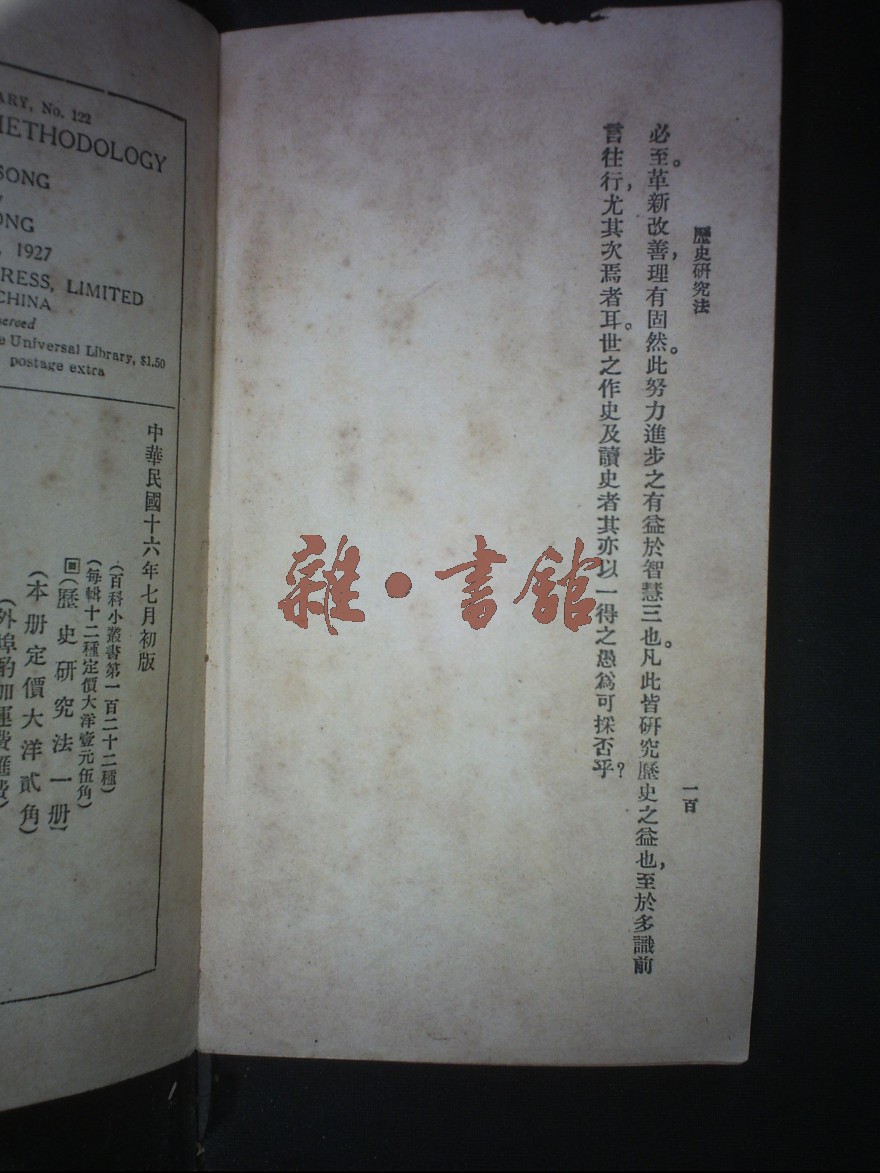 歷史研究法
一百
必至。革新改善，理有固然。此努力進步之有益於智慧三也。凡此皆研究歷史之益也，至於多識前
言往行，尤其次焉者耳。世之作史及讀史者其亦以一得之愚爲可採否乎？
雜·書館
ARY, No. 122
METHODOLOGY
SONG
ONG
, 1927
RESS, LIMITED
CHINA
served
e Universal Library, $1.50
postage extra
中華民國十六年七月初版
(百科小叢書第一百二十二種)
(每輯十二種定價大洋壹元伍角)
(歷史研究法一册)
(本册定價大洋貳角)
(外埠酌加運費匯費)